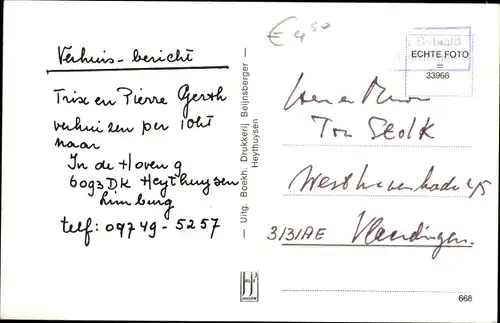 € 4,50
Verhuis-bericht
Trix en Pierre Gerth
verhuizen per 1 okt
naar
In de Hoven 9
6093 DK Heythuysen
Limburg
telf: 04749-5257
— Uitg. Boekh. Drukkerij Beijnsberger —
Heythuysen
Betaald
ECHTE FOTO
=
33966
Heer en Mevr
Ton Stolk
Westhavenkade 45
3131AE Vlaardingen.
668